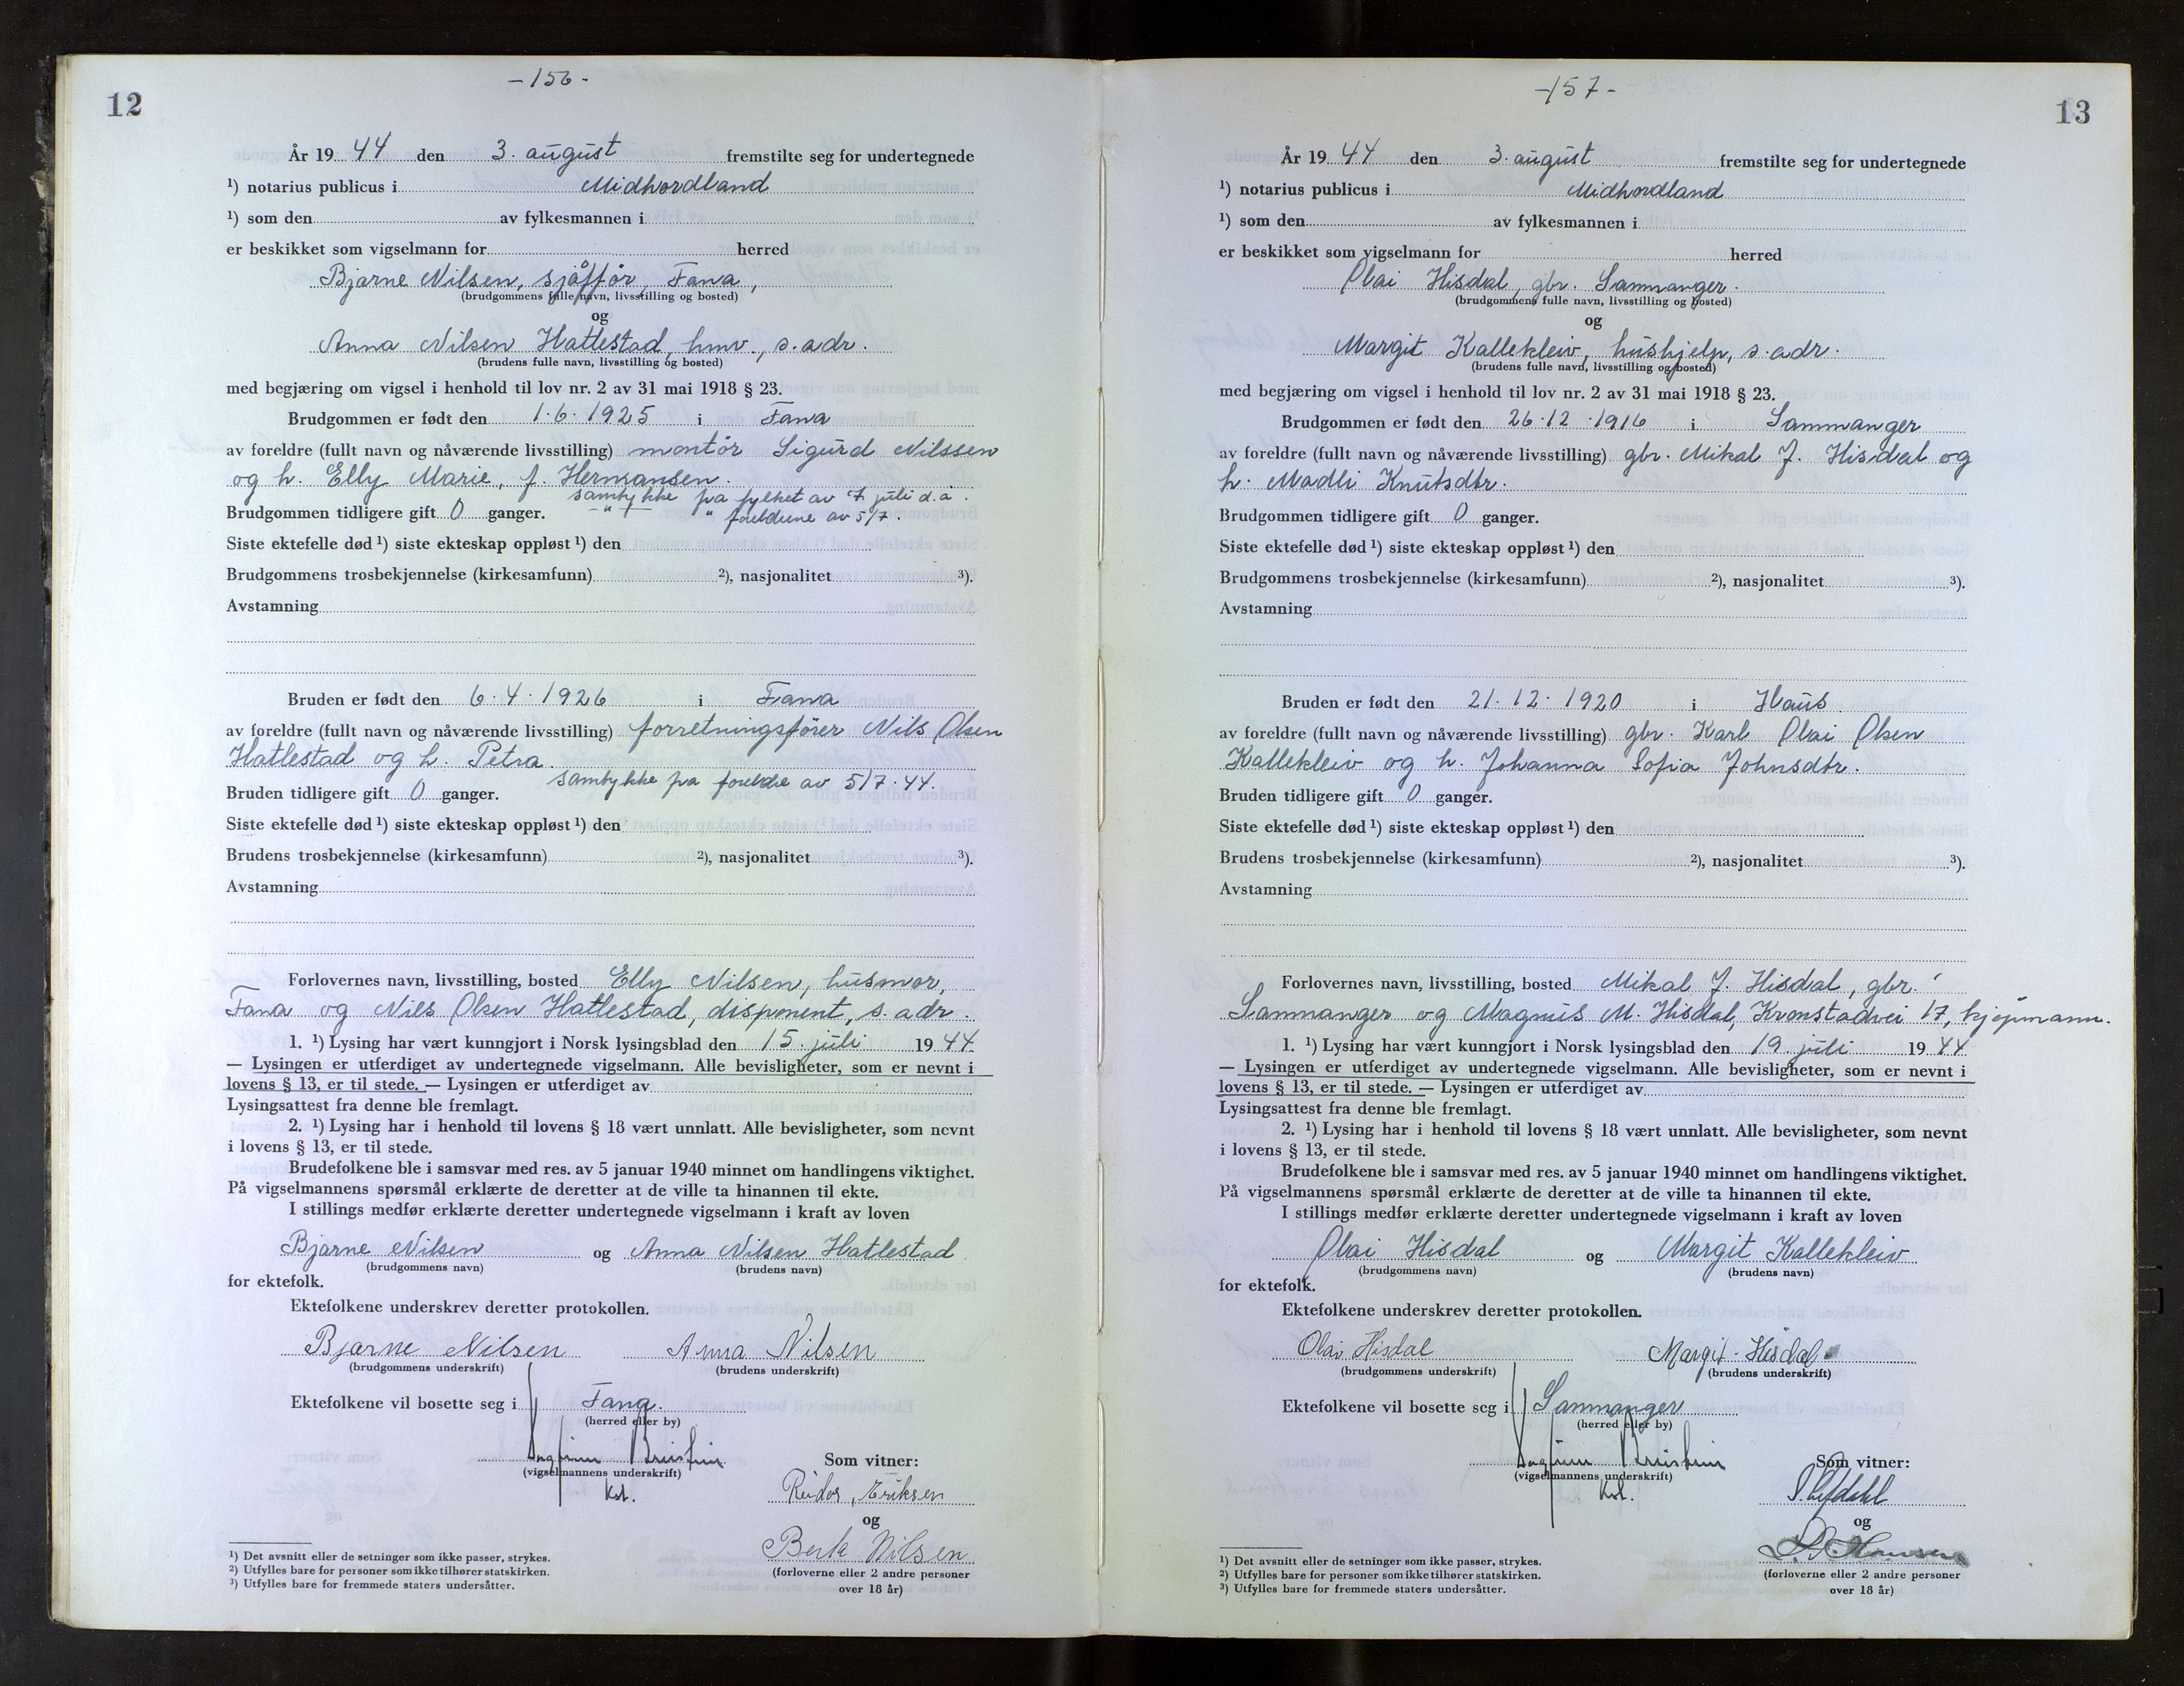 12
-156-
År 19 44 den 3. august fremstilte seg for undertegnede
¹) notarius publicus i Midhordland
¹) som den av fylkesmannen i
er beskikket som vigselmann for herred
Bjarne Nilsen, sjåffør, Fana,
(brudgommens fulle navn, livsstilling og bosted)
og
Anna Nilsen Hatlestad, hmv., s. adr.
(brudens fulle navn, livsstilling og bosted)
med begjæring om vigsel i henhold til lov nr. 2 av 31 mai 1918 § 23.
Brudgommen er født den 1.6.1925 i Fana
av foreldre (fullt navn og nåværende livsstilling) montør Sigurd Nilssen
og h. Elly Marie, f. Hermansen.
samtykke fra fylket av 7 juli d.å.
Brudgommen tidligere gift 0 ganger. -"- " foreldrene av 5/7.
Siste ektefelle død ¹) siste ekteskap oppløst ¹) den
Brudgommens trosbekjennelse (kirkesamfunn) ²), nasjonalitet ³).
Avstamning
Bruden er født den 6.4.1926 i Fana
av foreldre (fullt navn og nåværende livsstilling) forretningsfører Nils Olsen
Hatlestad og h. Petra.
samtykke fra foreldre av 5/7.44.
Bruden tidligere gift 0 ganger.
Siste ektefelle død ¹) siste ekteskap oppløst ¹) den
Brudens trosbekjennelse (kirkesamfunn) ²), nasjonalitet ³).
Avstamning
Forlovernes navn, livsstilling, bosted Elly Nilsen, husmor,
Fana og Nils Olsen Hatlestad, disponent, s. adr.
1. ¹) Lysing har vært kunngjort i Norsk lysingsblad den 15. juli 19 44
— Lysingen er utferdiget av undertegnede vigselmann. Alle bevisligheter, som er nevnt i
lovens § 13, er til stede. — Lysingen er utferdiget av
Lysingsattest fra denne ble fremlagt.
2. ¹) Lysing har i henhold til lovens § 18 vært unnlatt. Alle bevisligheter, som nevnt
i lovens § 13, er til stede.
Brudefolkene ble i samsvar med res. av 5 januar 1940 minnet om handlingens viktighet.
På vigselmannens spørsmål erklærte de deretter at de ville ta hinannen til ekte.
I stillings medfør erklærte deretter undertegnede vigselmann i kraft av loven
Bjarne Nilsen og Anna Nilsen Hatlestad
(brudgommens navn) (brudens navn)
for ektefolk.
Ektefolkene underskrev deretter protokollen.
Bjarne Nilsen Anna Nilsen
(brudgommens underskrift) (brudens underskrift)
Ektefolkene vil bosette seg i Fana.
(herred eller by)
(vigselmannens underskrift)
Som vitner:
Reidar Eriksen
og
Nilsen
(forloverne eller 2 andre personer
over 18 år)
¹) Det avsnitt eller de setninger som ikke passer, strykes.
²) Utfylles bare for personer som ikke tilhører statskirken.
³) Utfylles bare for fremmede staters undersåtter.
13
-157-
År 19 44 den 3. august fremstilte seg for undertegnede
¹) notarius publicus i Midhordland
¹) som den av fylkesmannen i
er beskikket som vigselmann for herred
Olai Hisdal, gbr. Samnanger.
(brudgommens fulle navn, livsstilling og bosted)
og
Margit Kallekleiv, hushjelp, s. adr.
(brudens fulle navn, livsstilling og bosted)
med begjæring om vigsel i henhold til lov nr. 2 av 31 mai 1918 § 23.
Brudgommen er født den 26.12.1916 i Samnanger
av foreldre (fullt navn og nåværende livsstilling) gbr. Mikal J. Hisdal og
h. Madli Knutsdtr.
Brudgommen tidligere gift 0 ganger.
Siste ektefelle død ¹) siste ekteskap oppløst ¹) den
Brudgommens trosbekjennelse (kirkesamfunn) ²), nasjonalitet ³).
Avstamning
Bruden er født den 21.12.1920 i Haus
av foreldre (fullt navn og nåværende livsstilling) gbr. Karl Olai Olsen
Kallekleiv og h. Johanna Sofia Johnsdtr.
Bruden tidligere gift 0 ganger.
Siste ektefelle død ¹) siste ekteskap oppløst ¹) den
Brudens trosbekjennelse (kirkesamfunn) ²), nasjonalitet ³).
Avstamning
Forlovernes navn, livsstilling, bosted Mikal J. Hisdal, gbr.
Samnanger og Magnus M. Hisdal, Kronstadvei 17, kjøpmann.
1. ¹) Lysing har vært kunngjort i Norsk lysingsblad den 19. juli 19 44
— Lysingen er utferdiget av undertegnede vigselmann. Alle bevisligheter, som er nevnt i
lovens § 13, er til stede. — Lysingen er utferdiget av
Lysingsattest fra denne ble fremlagt.
2. ¹) Lysing har i henhold til lovens § 18 vært unnlatt. Alle bevisligheter, som nevnt
i lovens § 13, er til stede.
Brudefolkene ble i samsvar med res. av 5 januar 1940 minnet om handlingens viktighet.
På vigselmannens spørsmål erklærte de deretter at de ville ta hinannen til ekte.
I stillings medfør erklærte deretter undertegnede vigselmann i kraft av loven
Olai Hisdal og Margit Kallekleiv
(brudgommens navn) (brudens navn)
for ektefolk.
Ektefolkene underskrev deretter protokollen.
Olai Hisdal Margit Hisdal
(brudgommens underskrift) (brudens underskrift)
Ektefolkene vil bosette seg i Samnanger
(herred eller by)
(vigselmannens underskrift)
Som vitner:
og
Hansen
(forloverne eller 2 andre personer
over 18 år)
¹) Det avsnitt eller de setninger som ikke passer, strykes.
²) Utfylles bare for personer som ikke tilhører statskirken.
³) Utfylles bare for fremmede staters undersåtter.